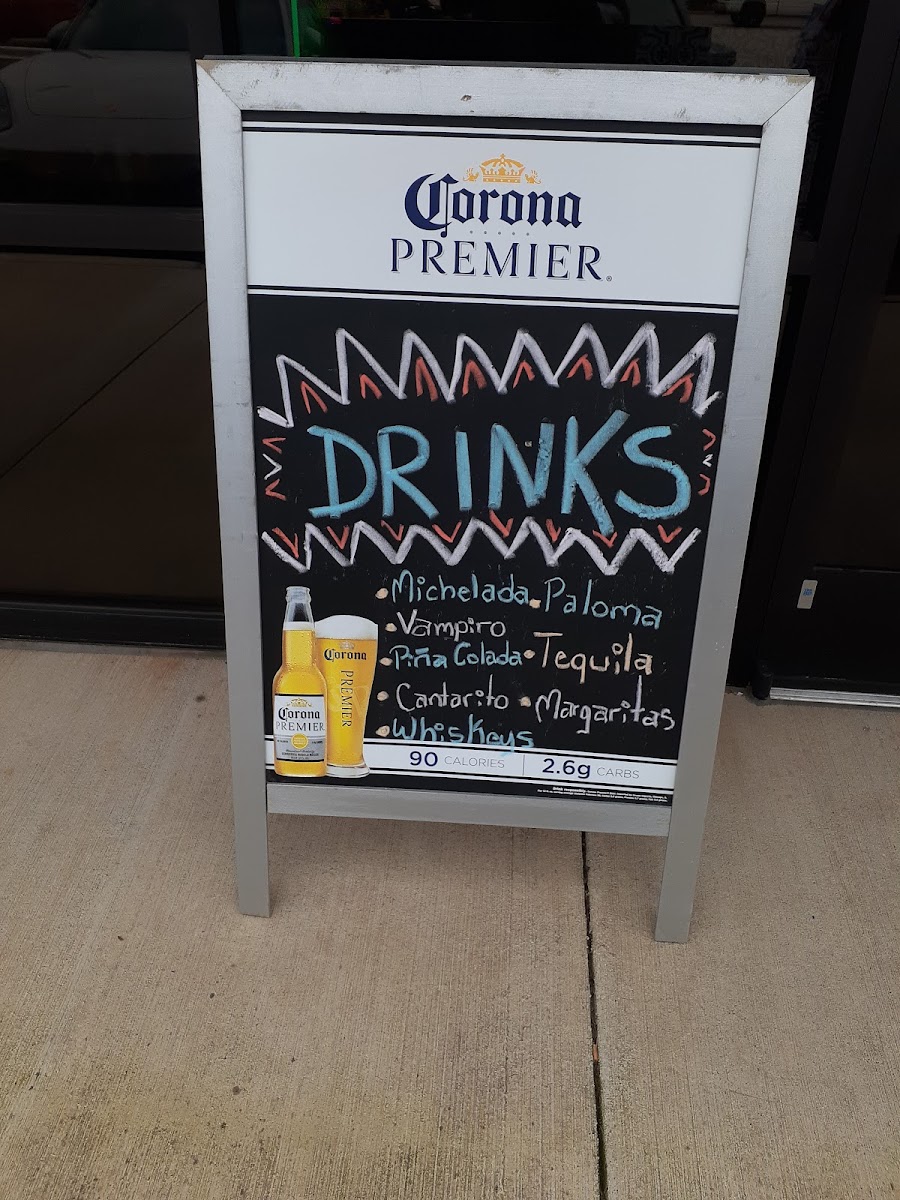 Corona
PREMIER®
DRINKS
• Michelada • Paloma
• Vampiro
• Piña Colada • Tequila
• Cantarito • Margaritas
• Whiskeys
Corona
PREMIER
Corona
PREMIER
90 CALORIES 2.6g CARBS